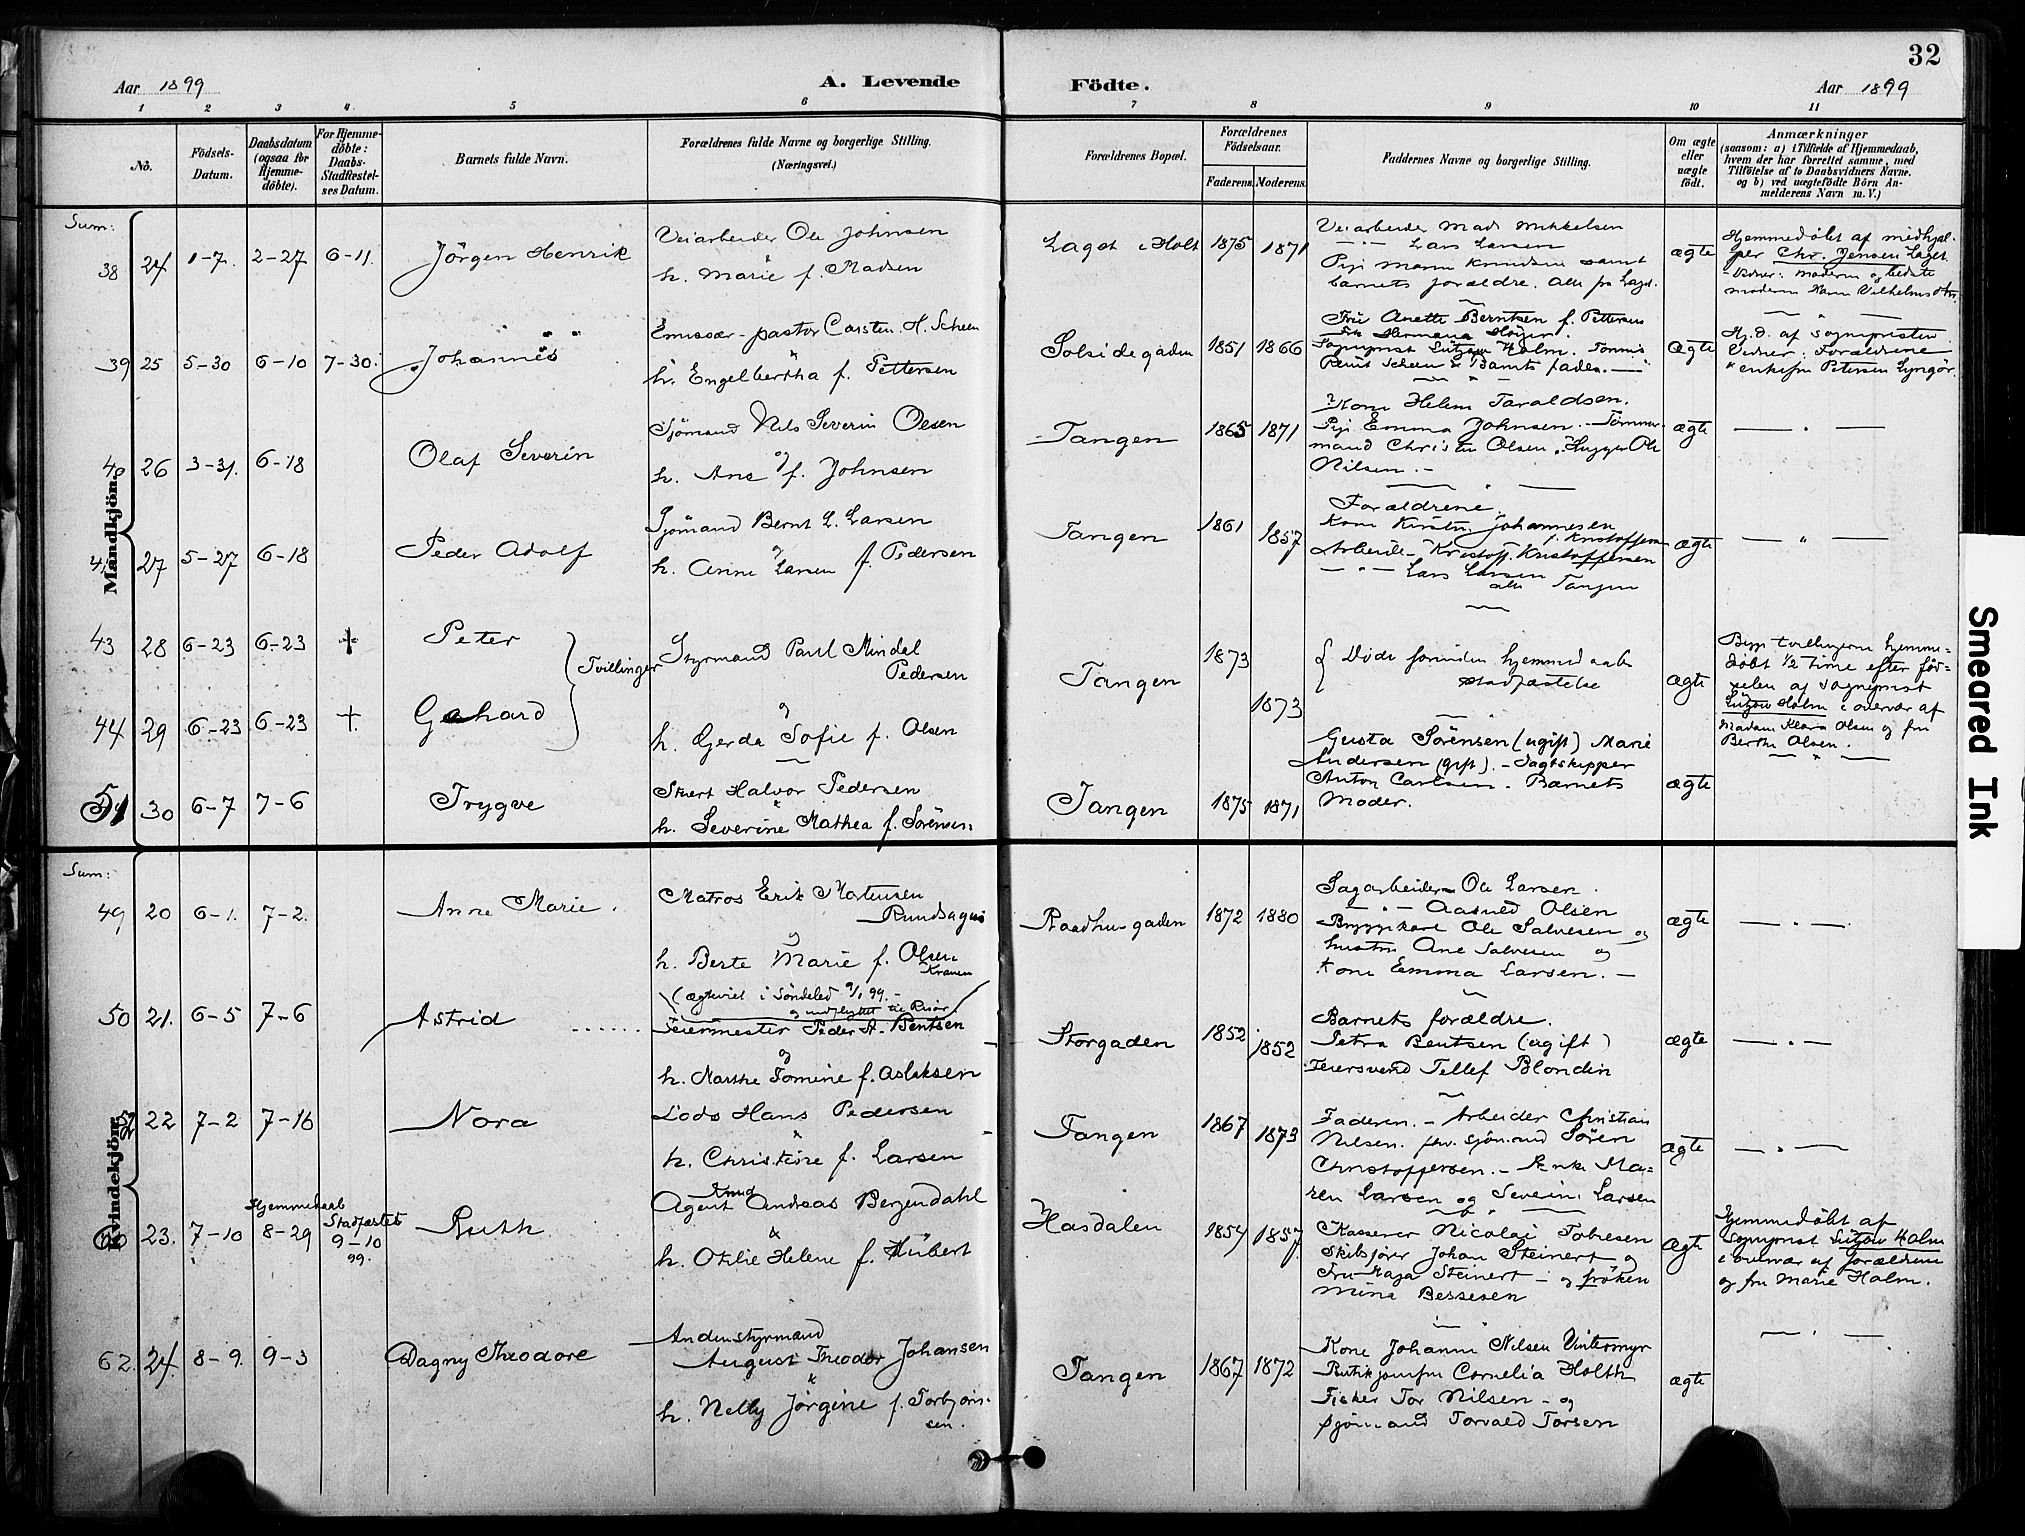 32
Aar 1899
A. Levende
Födte.
Aar 1899
1 2 3 4 5 6 7 8 9 10 11
No.
Födsels-
Datum.
Daabsdatum
(ogsaa for
Hjemme-
döbte).
For Hjemme-
döbte:
Daabs-
Stadfæstel-
ses Datum.
Barnets fulde Navn.
Forældrenes fulde Navne og borgerlige Stilling.
(Næringsvei.)
Forældrenes Bopæl.
Forældrenes
Födselsaar.
Faderens. Moderens.
Faddernes Navne og borgerlige Stilling.
Om ægte
eller
uægte
födt.
Anmærkninger
(saasom: a) i Tilfælde af Hjemmedaab,
hvem der har forrettet samme, med
Tilföielse af to Daabsvidners Navne.
og b) ved uægtefödte Börn An-
melderens Navn m. V.)
Mandkjön.
Sum:
38 24 1-7. 2-27 6-11. Jörgen Henrik
Veiarbeider Ole Johnsen
&
h. Marie f. Madsen
Laget i Holt 1875 1871
Veiarbeider Mads Mikkelsen
— " — Lars Larsen
Pige Maren Knudsen samt
barnets forældre. Alle fra Laget.
ægte
Hjemmedöbt af medhjæl-
per Chr. Jensen Laget.
39 25 5-30 6-10 7-30. Johannes
Emissær-pastor Carsten. H. Scheen
&
h. Engelbertha f. Pettersen
Solsidegaden 1851 1866
Fru Anette Berntsen f. Pettersen
Frk Hermana Höyer.
Sognepræst Lützow Holm.
Scheen & Barnets fader. —
ægte
Hj. d. af sognepresten.
Vidner: Forældrene
& enkefru Petersen Lyngör.
40 26 3-31. 6-18 Olaf Severin
Sjömand Nils Severin Olsen
og
h. Ane f. Johnsen
Tangen 1865 1871
Kone Helene Taraldsen.
Pige Emma Johnsen. Tömmer-
mand Christen Olsen. Hugger Ole
Nilsen. —
ægte — " —
41 27 5-27 6-18 Peder Adolf
Sjömand Bernt L. Larsen
og
h. Anne Larsen f. Pedersen
Tangen 1861 1857
Forældrene.
Kone Kirsten Johannesen
f. Kristoffersen
Arbeider Kristoff. Kristoffersen
— " — Lars Larsen
alle Tangen
ægte — " —
43 28 6-23 6-23 + Peter
44 29 6-23 6-23 +. Gerhard
Tvillinger
Styrmand Paul Mindal
Pedersen
og
h. Gerda Sofie f. Olsen
Tangen 1873 1873
Döde forinden hjemmedaabs
stadfæstelse
ægte
Begge tvillingerne hjemme-
döbt 1/2 time efter föd-
selen af sognepræst
Lützow Holm i overvær af
Madam Klara Olsen og fru
Berthe Olsen.
51 30 6-7 7-6 Trygve
Stuert Halvor Pedersen
&
h. Severine Mathea f. Sörensen
Tangen 1875 1871
Gusta Sörensen (ugift) Marie
Andersen (gift). - Jagtskipper
Anton Carlsen. Barnets
Moder.
ægte — " —
Kvindekjön.
Sum:
49 20 6-1. 7-2. Anne Marie.
Matros Erik
og
h. Berte Marie f. Olsen
(ægteviet i Söndeled 9/1 99. —
og indflyttet til Risör)
Raadhusgaden 1872 1880
Sagarbeider Ole Larsen.
— " — Aasuld Olsen
Bryggekarl Ole Salvesen og
hustru Ane Salvesen og
Kone Emma Larsen. —
ægte — " —
50 21. 6-5 7-6 Astrid
Feiermester Peder A. Bentsen
og
h. Marthe Tomine f. Aslaksen
Storgaden 1852 1852
Barnets forældre.
Petra Bentsen (ugift)
Feiersvend Tellef Blondin
ægte — " —
22 7-2 7-16 Nora
Lods Hans Pedersen
&
h. Christine f. Larsen
Tangen 1867 1873
Faderen. - Arbeider Christian
Nilsen. fhv. sjömand Sören
Christoffersen. - Enke Ma-
ren Larsen og Severin Larsen
ægte — " —
23. 7-10
Hjemmedaab
8-29
Stadfæstet
9-10
99.
Ruth
Knud
Agent Andreas Bergendahl
&
h. Otilie Helene f. Hübert
Hasdalen 1854 1857
Kasserer Nicolai Tobiesen
Skibsförer Johan Steinert og
Fru Kaja Steinert - og fröken
Mina Bessesen
ægte
Hjemmedöbt af
sognepræst Lützow Holm
i overvær af forældrene
og fru Marie Holm.
62. 24. 8-9. 9-3 Dagny Theodore
Andenstyrmand
August Theodor Johansen
&
h. Nelly Jörgine f. Torbjörn-
sen.
Tangen 1867 1872
Kone Johanne Nilsen Vintermyr
Butikjomfru Cornelia Holth
Fisker Tor Nilsen - og
Sjömand Torvald Torsen
ægte — " —
Smeared Ink